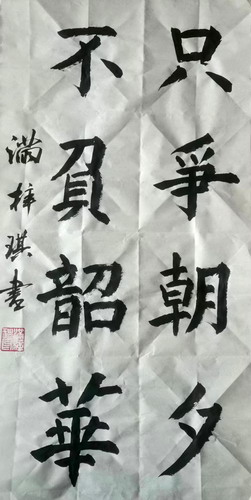 只爭朝夕
不負韶華
滿梓琪書